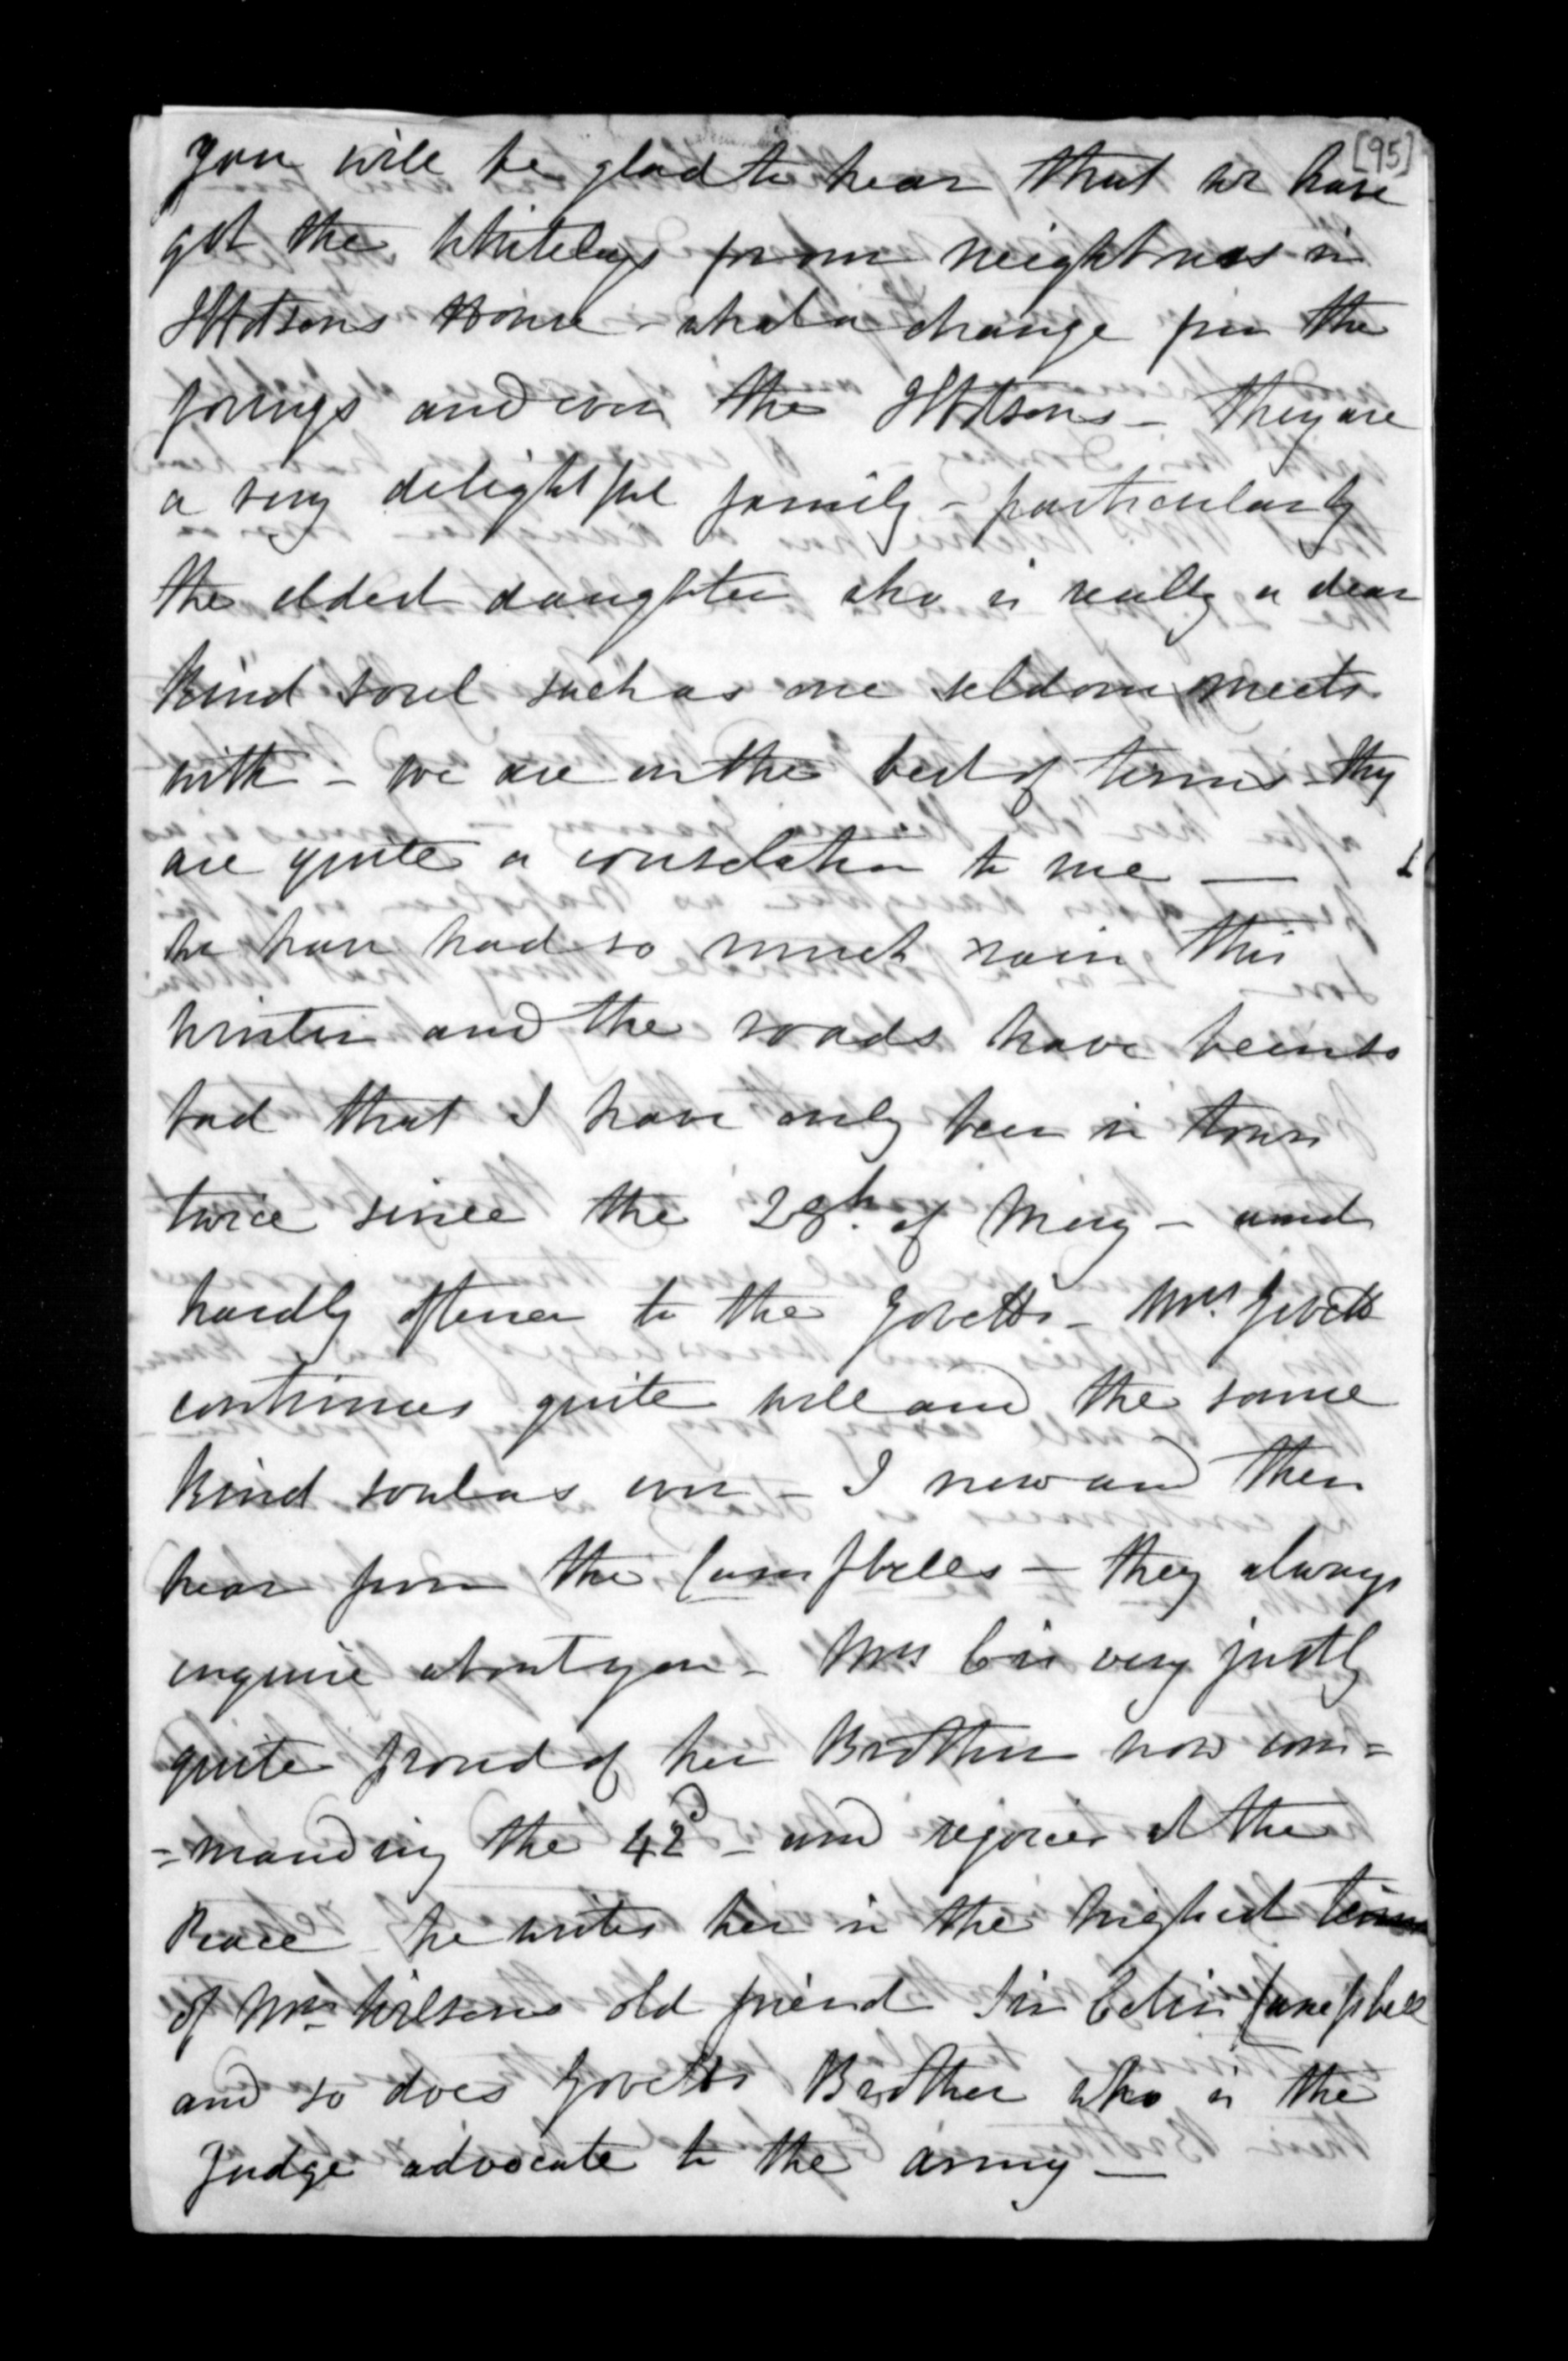 [95]
you will be glad to hear that we have
got the Whitelays for our neighbours in
Hotsons House - what a change from the
youngs and even the Hotsons - they are
a very delightful family - particularly
the eldest daughter who is really a dear
kind soul such as one seldom meets
with - we are on the best of terms - they
are quite a consolation to me —
we have had so much rain this
winter and the roads have been so
bad that I have only been in town
twice since the 28th. of May - and
hardly oftener to the Govetts - Mrs. Govett
continues quite well and the same
kind soul as ever - I now and then
hear from the Campbells - they always
enquire about you - Mrs C is very justly
quite proud of her Brother now com=
=manding the 42d - and rejoices at the
Peace he writes her in the highest terms
of Mrs Wilsons old friend Sir Colin Campbell
and so does Govetts Brother who is the
Judge advocate to the army —